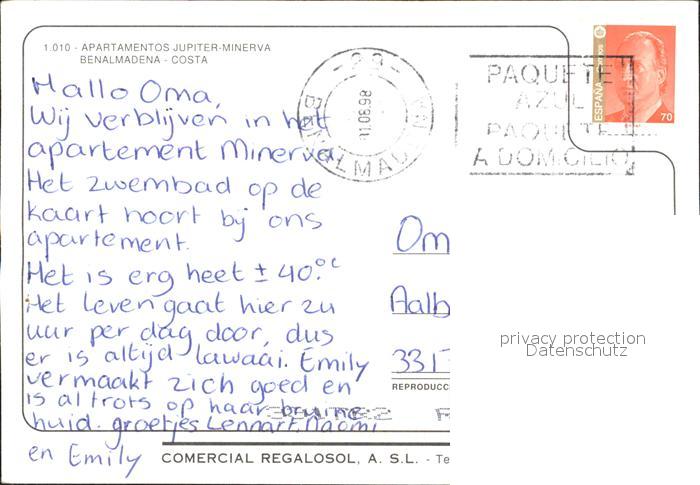 1.010 - APARTAMENTOS JUPITER-MINERVA
BENALMADENA - COSTA
Hallo Oma,
Wij verblijven in het
apartement Minerva
Het zwembad op de
kaart hoort bij ons
apartement.
Het is erg heet ± 40.°c
Het leven gaat hier 24
uur per dag door, dus
er is altijd lawaai. Emily
vermaakt zich goed en
is al trots op haar bruine
huid. groetjes Lennart, Naomi
en Emily
11.08.98
PAQUETE
AZUL
PAQUETE
A DOMICILIO
ESPAÑA
70
Om
Aalb
331
REPRODUCC
privacy protection
Datenschutz
COMERCIAL REGALOSOL, A. S.L. - Te